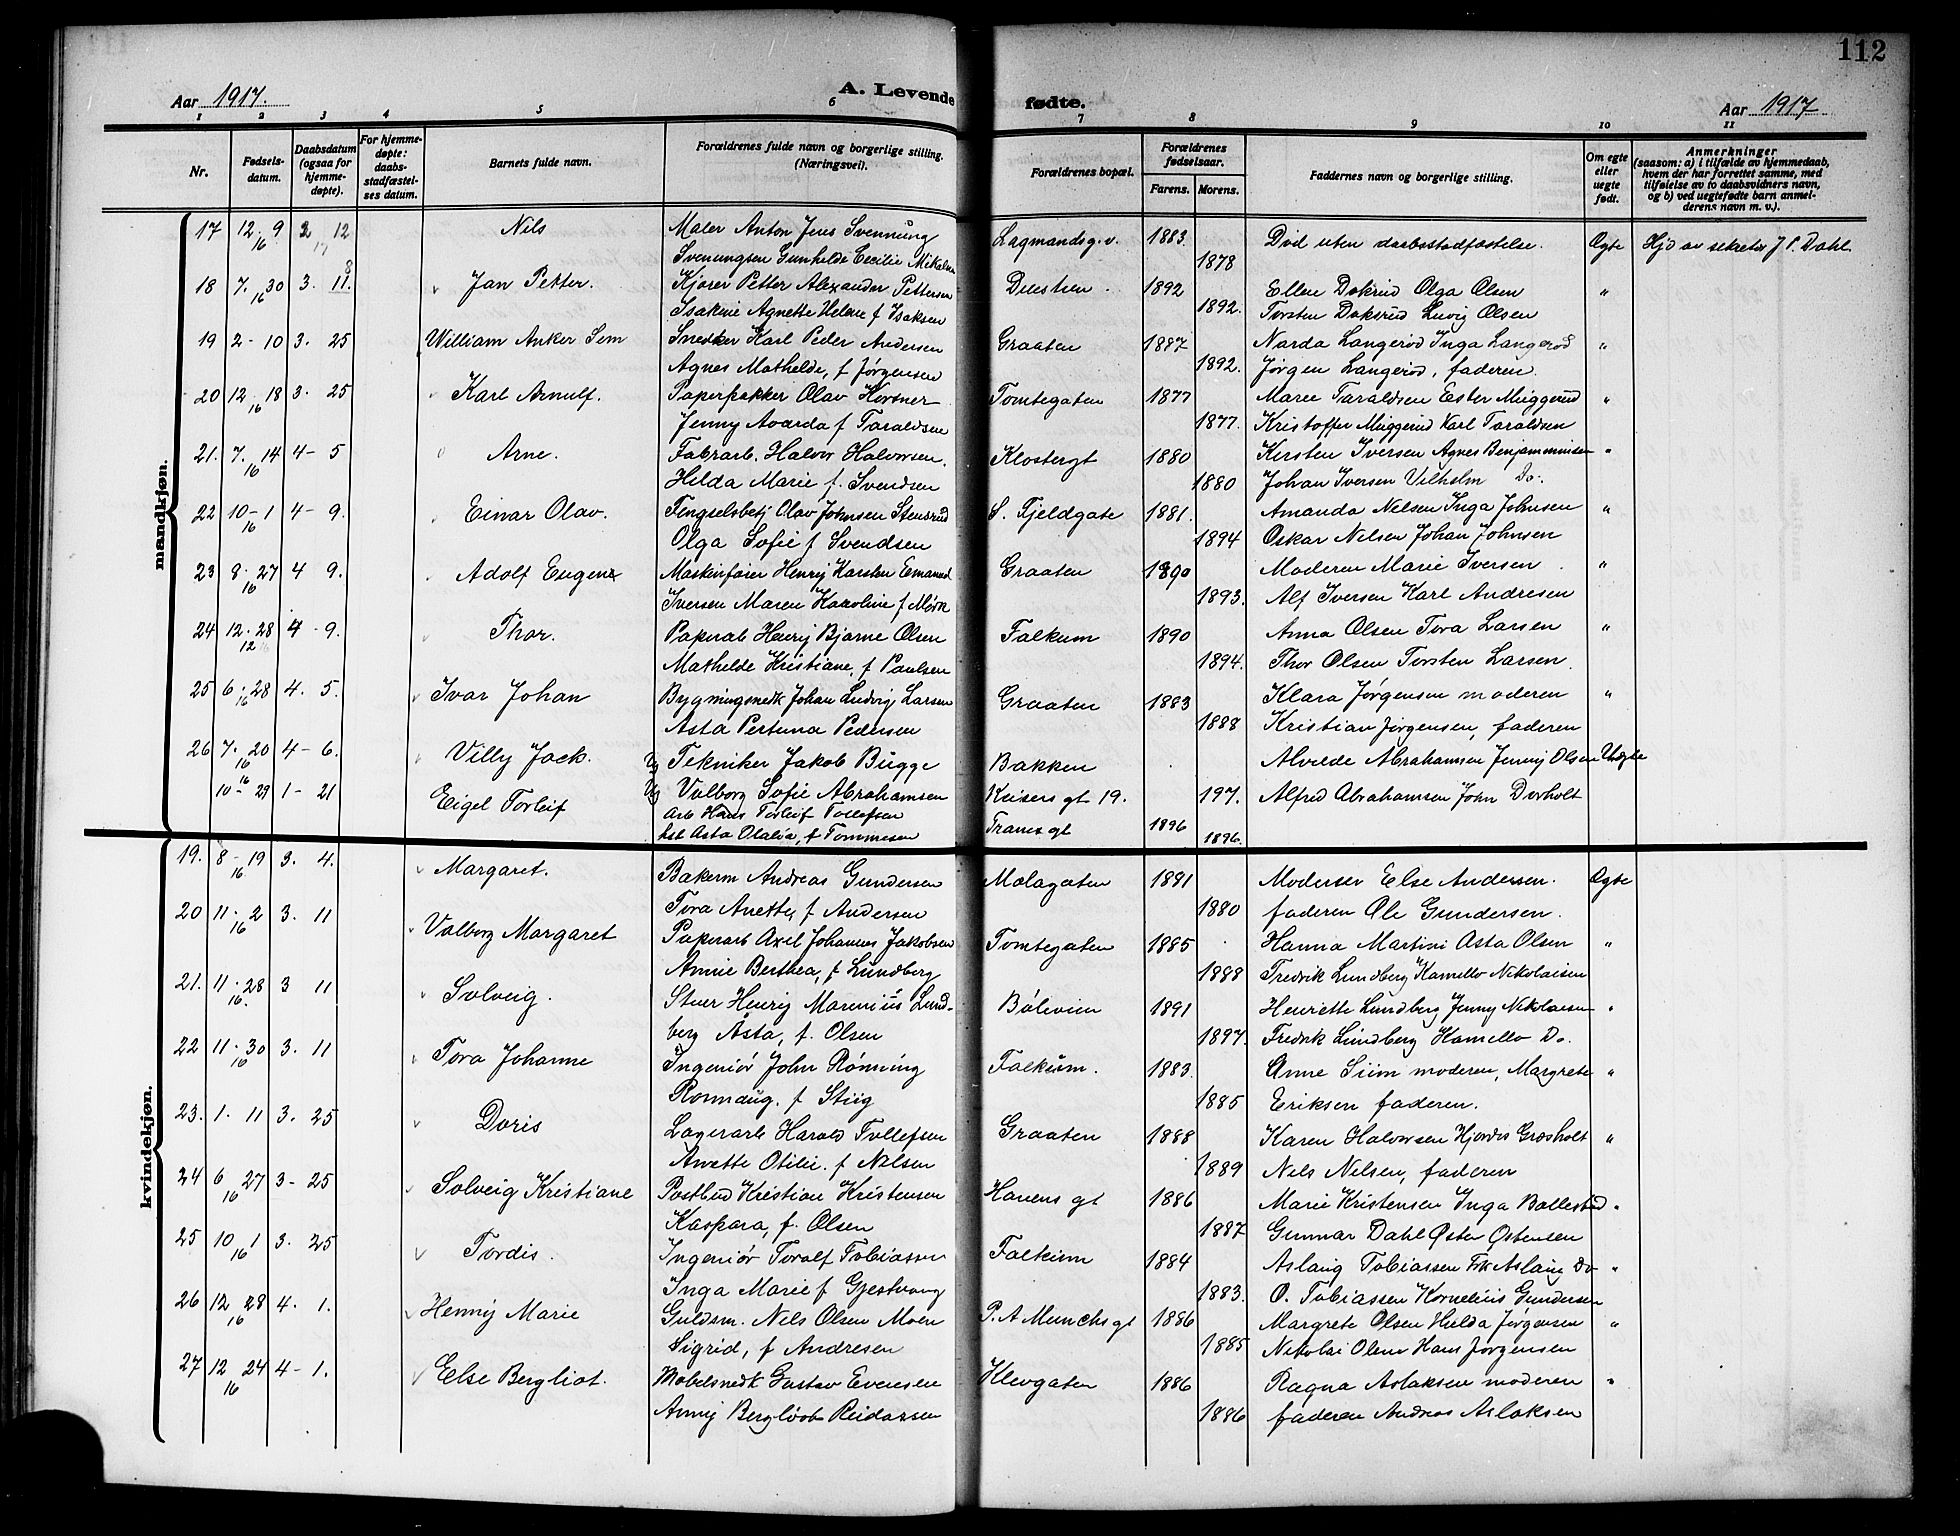 112
Aar 1917.
A. Levende fødte.
Aar 1917
1 2 3 4 5 6 7 8 9 10 11
Nr.
Fødsels-
datum.
Daabsdatum
(ogsaa for
hjemme-
døpte).
For hjemme-
døpte:
daabs-
stadfæstel-
ses datum.
Barnets fulde navn.
Forældrenes fulde navn og borgerlige stilling.
(Næringsvei).
Forældrenes bopæl.
Forældrenes
fødselsaar.
Farens. Morens.
Faddernes navn og borgerlige stilling.
Om egte
eller
uegte
født.
Anmerkninger
(saasom: a) i tilfælde av hjemmedaab,
hvem der har forrettet samme, med
tilføielse av to daabsvidners navn,
og b) ved uegtefødte barn anmel-
derens navn m. v.).
mandkjøn.
17 12-9 16 2 12 17 Nils Maler Anton Jens Svennung Lagmandsg.v. 1883. Död uten daabsstadfæstelse. Ogte Hjd av sekretær J P. Dahl
Svenungsen Gunhilde Cecilie Mikalsen 1878
18 7. 30 16 3. 11. 8 Jan Petter. Kjører Petter Alexander Pettersen 1892 Ellen Doksrud Olga Olsen "
Isakene Agnette Helene f Isaksen 1892. Torsten Doksrud Luvig Olsen
19 2-10 3. 25 William Anker Sem Snedker Karl Peder Andersen Graaten 1887 Narda Langerød Inga Langerød "
Agnes Mathelde, f Jørgensen 1892. Jørgen Langerød, faderen.
20 12-18 16 3. 25 Karl Arnulf. Papirpakker Olav Kortner Tomtegaten 1877 Maree Taraldsen Ester Muggerud "
Jenny Avarda f Taraldsen 1877. Kristoffer Muggerud Karl Taraldsen
21. 7. 14 16 4-5 Arne. Fabrarb. Halvor Halvorsen. Klostergt 1880 Kirsten Iversen Agnes Benjaminsen "
Hilda Marie f. Svendsen 1880 Johan Iversen Vilhelm Do.
22 10-1 16 4-9. Einar Olav. Fengselsbetj Olav Johnsen Stensrud S. Fjeldgate 1881. Amanda Nelsen Inga Johnsen "
Olga Sofie f Svendsen 1894 Oskar Nelsen Johan Johnsen
23 8. 27 16 4 9. Adolf Eugen Maskinfører Henry Karsten Emanuel Graaten 1890 Moderen Marie Iversen. "
Iversen Maren Karoline f Mörk 1893. Alf Iversen Karl Andresen
24 12-28 12 4-9. Thor. Papirarb Henry Bjarne Olsen Falkum 1890 Anna Olsen Tora Larsen "
Mathelde Kristiane, f Paulsen 1894. Thor Olsen Torsten Larsen.
25 6. 28 16 4. 5. Ivar Johan Bygningsnedk Johan Ludvig Larsen Graaten 1883 Klara Jørgensen moderen "
Asta Pertuna Pedersen 1888 Kristian Jørgensen, faderen
26 7. 20 16 4-6. Villy Jack. Ug Tekniker Jakob Bugge Bakken Alvilde Abrahamsen Jenny Olsen Uægte
Ug Valborg Sofie Abrahamsen Keisers gt 19. 197. Alfred Abrahamsen John Dorholt
10-29 16 1-21 Eigel Torleif Arb Hans Torleif Tollefsen Frams gt 1896
hst Asta Otalia, f Tommesen 1896.
kvindekjøn.
19. 8-19 16 3. 4. Margaret. Bakerm Andreas Gundersen Molagaten 1881 Moderser Else Andersen. Ogte
Tora Anette, f Andersen 1880 faderen Ole Gundersen.
20 11. 2 16 3. 11 Valborg Margaret Papirarb Axel Johannes Jakobsen Tomtegaten 1885 Hanna Martini Asta Olsen "
Annie Berthea, f Lundberg 1888 Fredrik Lundberg Kamello Nikolaisen
21. 11-28 16. 3 11 Solveig. Stuer Henrig Marenius Lund- Bölevien 1891 Henriette Lundberg Jenny Nikolaisen "
berg Asta, f. Olsen 1897. Fredrik Lundberg Kamello Do.
22 11. 30 16 3. 11 Tora Johanne Ingeniör John Rönning Falkum. 1883. Anne Siem moderen, Margrete "
Ronnaug. f Stuig 1885 Eriksen faderen.
23. 1. 11 3. 25 Doris Lagerarb Harald Tollefsen Graaten 1888 Karen Halvorsen Hjordis Græsholt "
Anette Otilie. f Nilsen 1889 Nels Nilsen, faderen
24 6 27 16 3-25 Solveig Kristiane Postbud Kristian Kristensen Havens gt 1886 Marie Kristensen Inga Ballestad "
Kaspara, f. Olsen 1887 Gunnar Dahl Øster Østensen
25 10 1 16 3. 25 Tordis. Ingeniör Toralf Tobiassen Falkum 1884 Aslaug Tobiassen Frk Aslaug Do "
Inga Marie f Gjestvang 1883. O. Tobiassen Kornelius Gundersen
26 12 28 16 4. 1. Henny Marie Guldsm. Nels Olsen Moen P. A Munchs gt 1886 Margrete Olsen Hilda Jørgensen "
Sigrid, f Andresen 1885 Nikolai Olsen Hans Jørgensen
27 12 24 16 4-1. Else Bergliot. Møbelsnedk Gustav Evensen Klevgaten 1886 Ragna Aslaksen moderen "
Anny Bergliot Reidarsen 1886 faderen Andreas Aslaksen